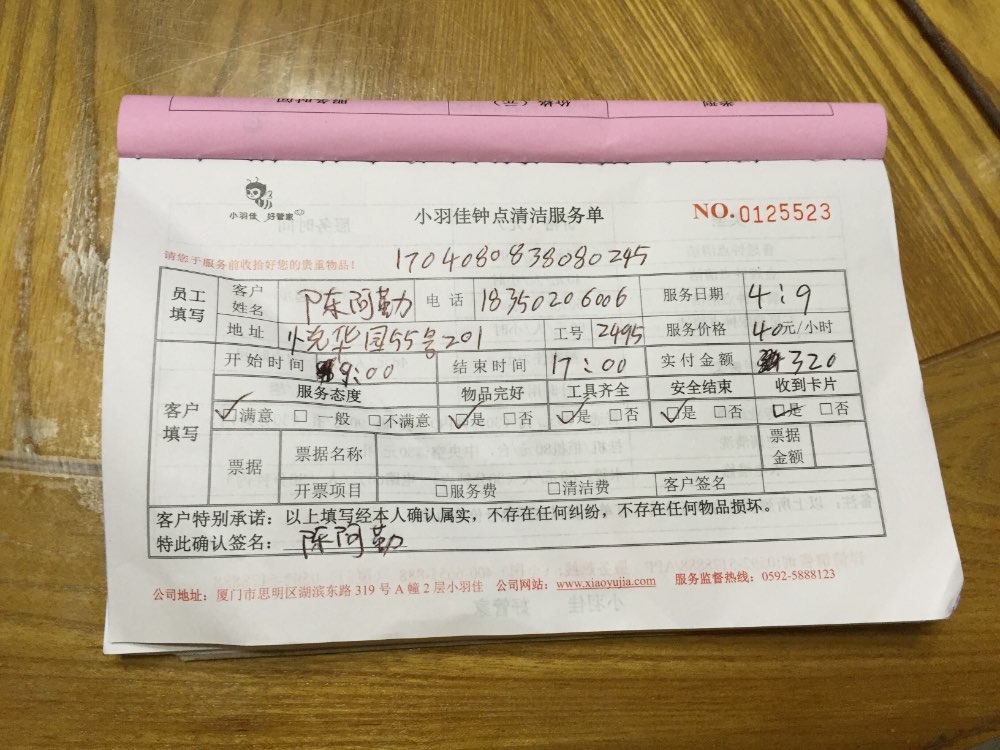 服务时间 价格（元） 类型
小羽佳 好管家
小羽佳钟点清洁服务单
NO.0125523
请您于服务前收拾好您的贵重物品！
1704080838080245
员工填写 客户姓名 陈阿勤 电话 18350206006 服务日期 4:9
地址 光华园55号201 工号 2495 服务价格 40元/小时
客户填写 开始时间 9:00 结束时间 17:00 实付金额 320
服务态度 物品完好 工具齐全 安全结束 收到卡片
☑满意 □一般 □不满意 ☑是 □否 ☑是 □否 ☑是 □否 ☑是 □否
票据 票据名称 票据金额
开票项目 □服务费 □清洁费 客户签名
客户特别承诺：以上填写经本人确认属实，不存在任何纠纷，不存在任何物品损坏。
特此确认签名： 陈阿勤
公司地址：厦门市思明区湖滨东路 319 号 A 幢 2 层小羽佳 公司网站：www.xiaoyujia.com 服务监督热线：0592-5888123